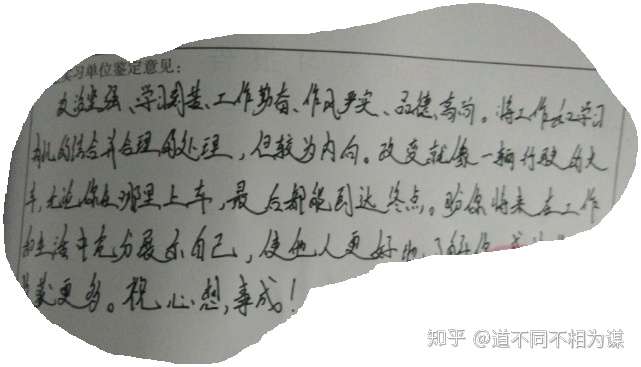 实习单位鉴定意见：
政治坚强、学习刻苦、工作勤奋、作风严实、品德高尚。将工作和学习
有机的结合并合理的处理，但较为内向。改变就像一辆行驶的火
车，无论你在哪里上车，最后都能到达终点。盼你将来在工作
和生活中充分展示自己，使他人更好的了解你
获更多。祝心想事成！
知乎 @道不同不相为谋